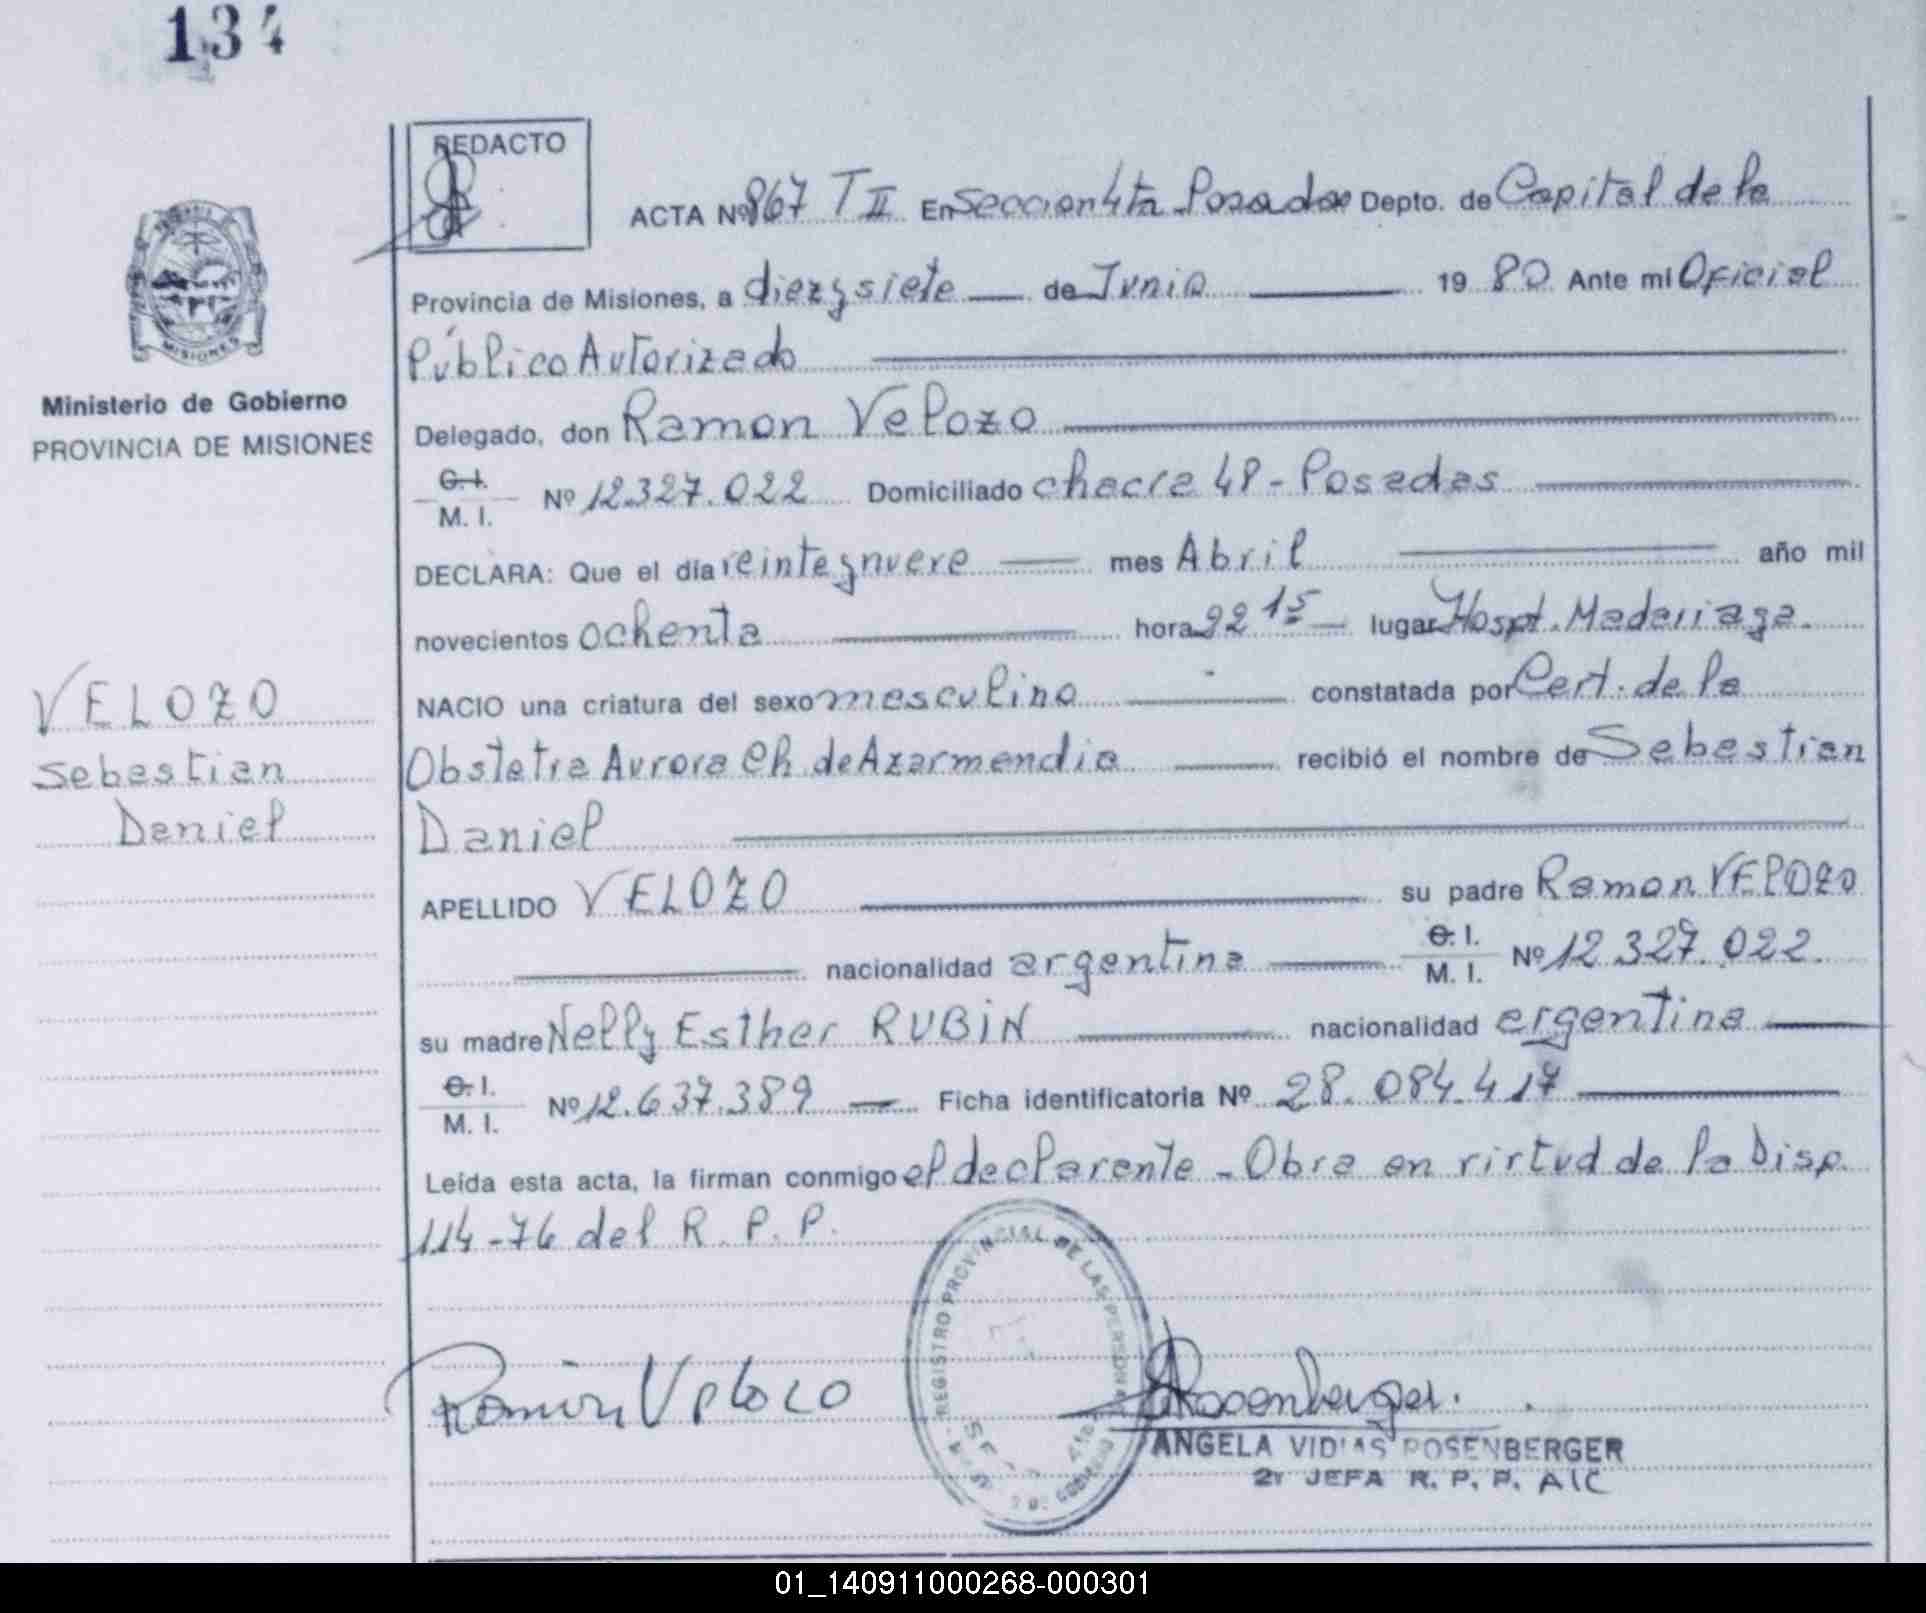 134
REDACTO
ACTA Nº 867 T II En Seccion 4ta Posadas Depto. de Capital de la
Provincia de Misiones, a diezysiete de Junio 19 80 Ante mi Oficial
Público Autorizado
MISIONES
Ministerio de Gobierno
PROVINCIA DE MISIONES
Delegado, don Ramon Velozo
C. I.
M. I. Nº 12.327.022 Domiciliado chacra 48 - Posadas
DECLARA: Que el día veinteynueve mes Abril año mil
novecientos ochenta hora 22 15 lugar Hospt. Madariaga.
VELOZO
Sebastian
Daniel
NACIO una criatura del sexo masculino constatada por Cert. de la
Obstetra Aurora Ch. de Azarmendia recibió el nombre de Sebastian
Daniel
APELLIDO VELOZO su padre Ramon VELOZO
nacionalidad argentina C. I.
M. I. Nº 12.327.022.
su madre Nelly Esther RUBiN nacionalidad argentina
C. I.
M. I. Nº 12.637.389 Ficha identificatoria Nº 28.084.417
Leída esta acta, la firman conmigo el declarante - Obra en virtud de la Disp.
114-76 del R. P. P.
REGISTRO PROVINCIAL DE LAS PERSONAS
Ramón Velozo
Rosenberger.
ANGELA VIDIAS ROSENBERGER
2º JEFA R. P. P. A|C
01_140911000268-000301